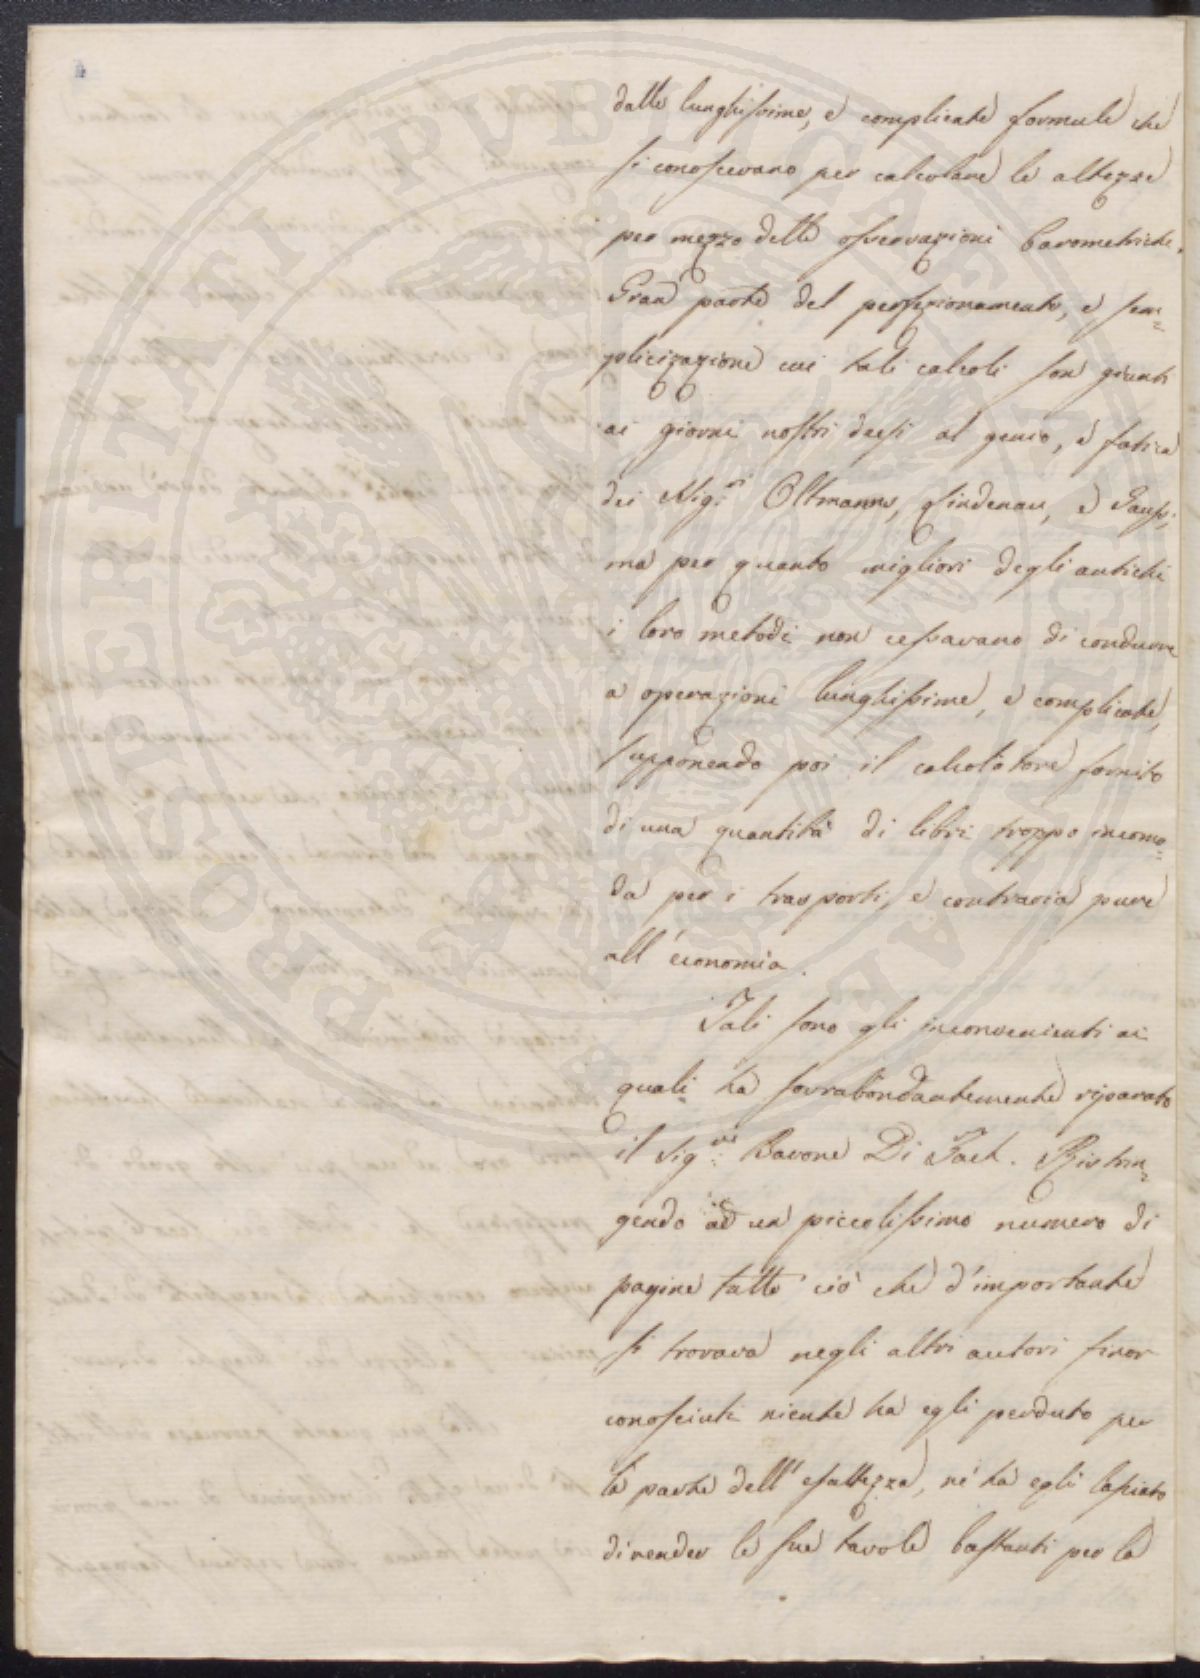 dalle lunghissime, e complicate formule che
si conoscevano per calcolare le altezze
per mezzo delle osservazioni barometriche.
Gran parte del perfezionamento, e sem=
plicizazione cui tali calcoli son giunti
ai giorni nostri deesi al genio, e fatica
dei Sig.ri Oltmanns, Lindenau, e Gauss;
ma per quanto migliori degli antichi
i loro metodi non cessavano di condurre
a operazioni lunghissime, e complicate,
supponendo poi il calcolatore fornito
di una quantità di libri troppo incomo=
da per i trasporti, e contraria pure
all'economia.
Tali sono gli inconvenienti ai
quali ha sovrabondantemente riparato
il Sig.re Barone Di Zach. Ristrin=
gendo ad un piccolissimo numero di
pagine tutto ciò che d'importante
si trovava negli altri autori finor
conosciuti niente ha egli perduto per
la parte dell'esattezza, né ha egli lasciato
di render le sue tavole bastanti per la
PROSPERITATI PVBLICAE AVGENDAE